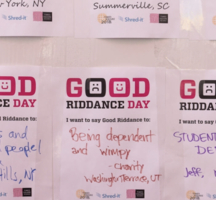 York, NY
Shred-it
Summerville, SC
Shred-it
GOOD
RIDDANCE DAY
and
people!
Hills, NY
GOOD
RIDDANCE DAY
I want to say Good Riddance to:
Being dependent
and wimpy
- charity
Washington Terrace, UT
Shred-it
GO
RIDDANC
I want to say Go
STUDENT
DE
Jeff,